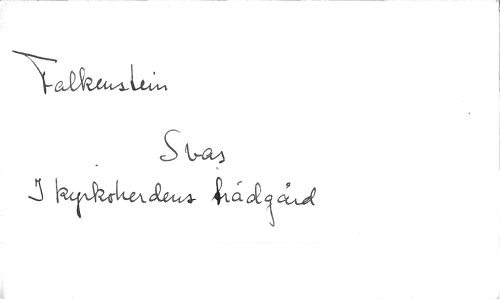 Falkenstein
Svas
I kyrkoherdens trädgård